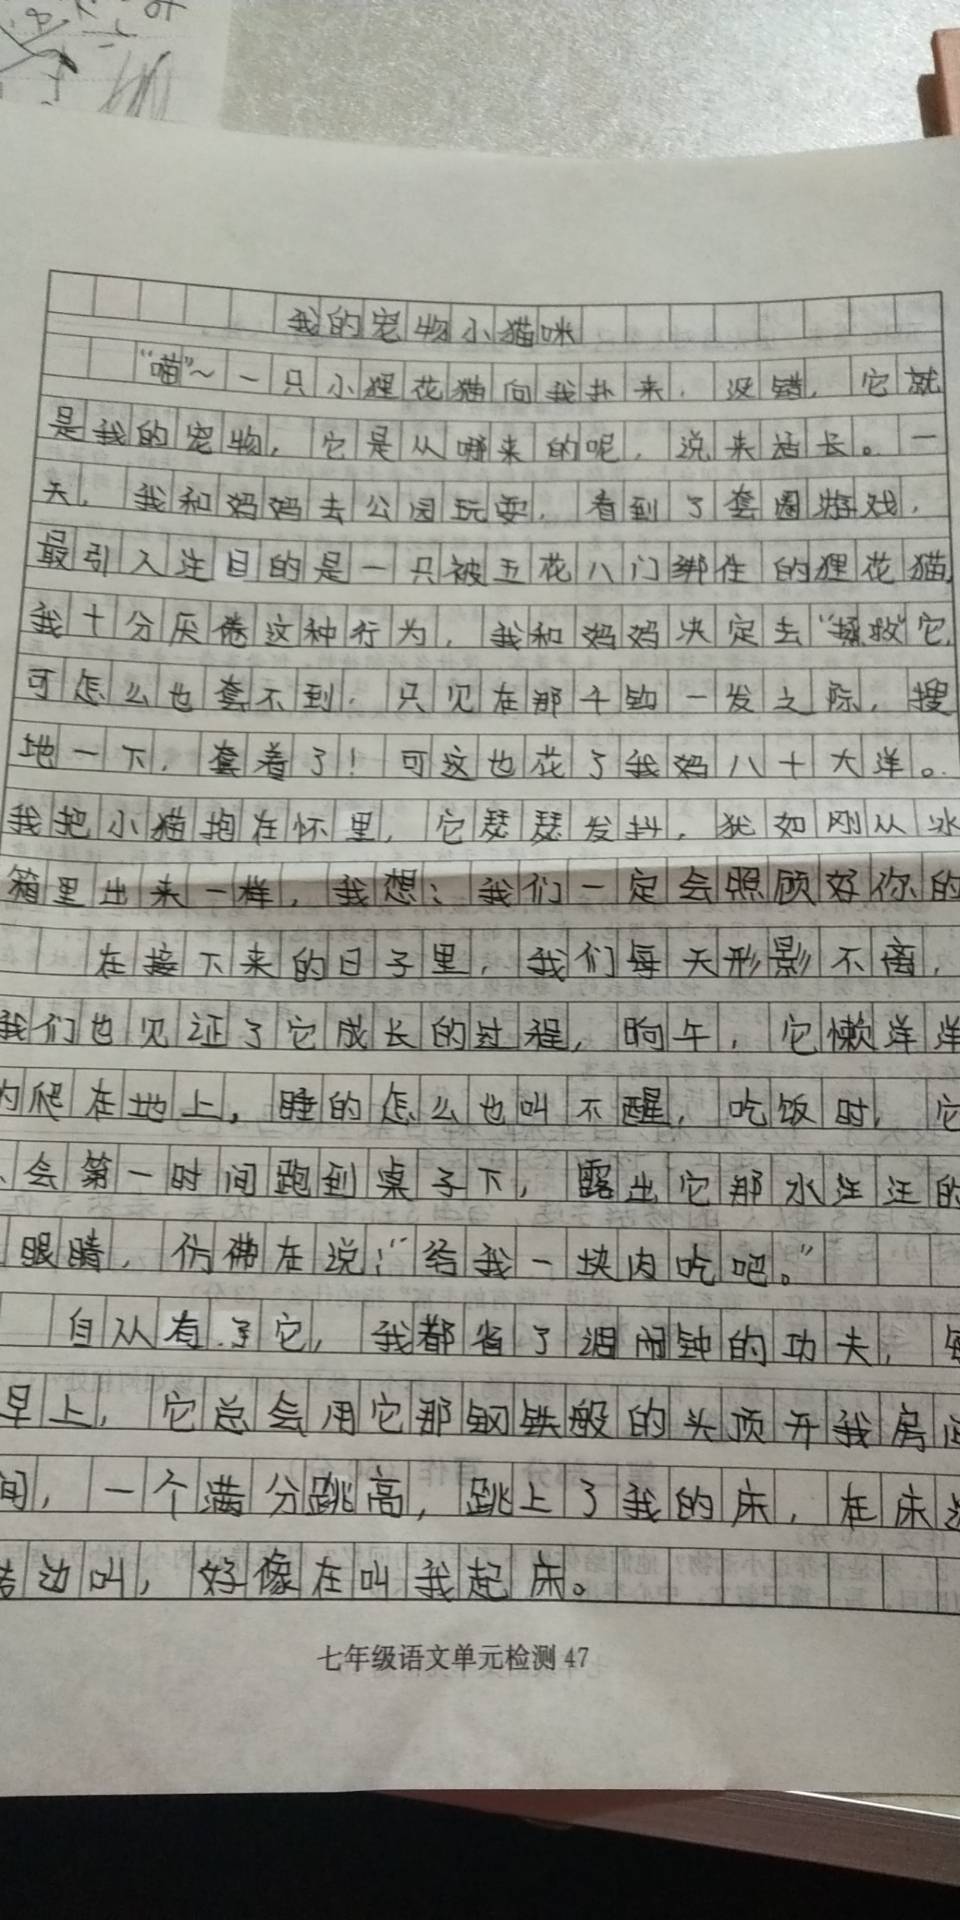 我的宠物小猫咪
“喵”～一只小狸花猫向我扑来，没错，它就
是我的宠物，它是从哪来的呢，说来话长。一
天，我和妈妈去公园玩耍，看到了套圈游戏，
最引人注目的是一只被五花八门绑住的狸花猫，
我十分厌倦这种行为，我和妈妈决定去“拯救”它，
可怎么也套不到，只见在那千钧一发之际，搜
地一下，套着了！可这也花了我妈八十大洋。
我把小猫抱在怀里，它瑟瑟发抖，犹如刚从冰
箱里出来一样，我想：我们一定会照顾好你的
在接下来的日子里，我们每天形影不离，
我们也见证了它成长的过程，晌午，它懒洋洋
的爬在地上，睡的怎么也叫不醒，吃饭时，它
会第一时间跑到桌子下，露出它那水汪汪的
眼睛，仿佛在说：“给我一块肉吃吧。”
自从有了它，我都省了调闹钟的功夫，每
早上，它总会用它那钢铁般的头顶开我房间
间，一个满分跳高，跳上了我的床，在床边
边叫，好像在叫我起床。
七年级语文单元检测 47